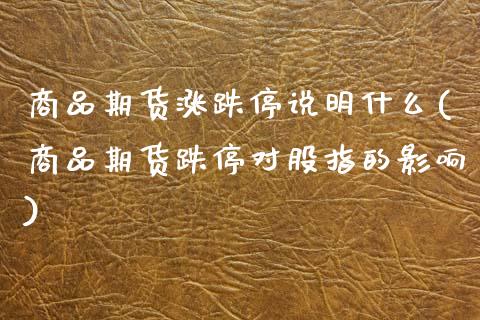 商品期货涨跌停说明什么(
商品期货跌停对股指的影响
)